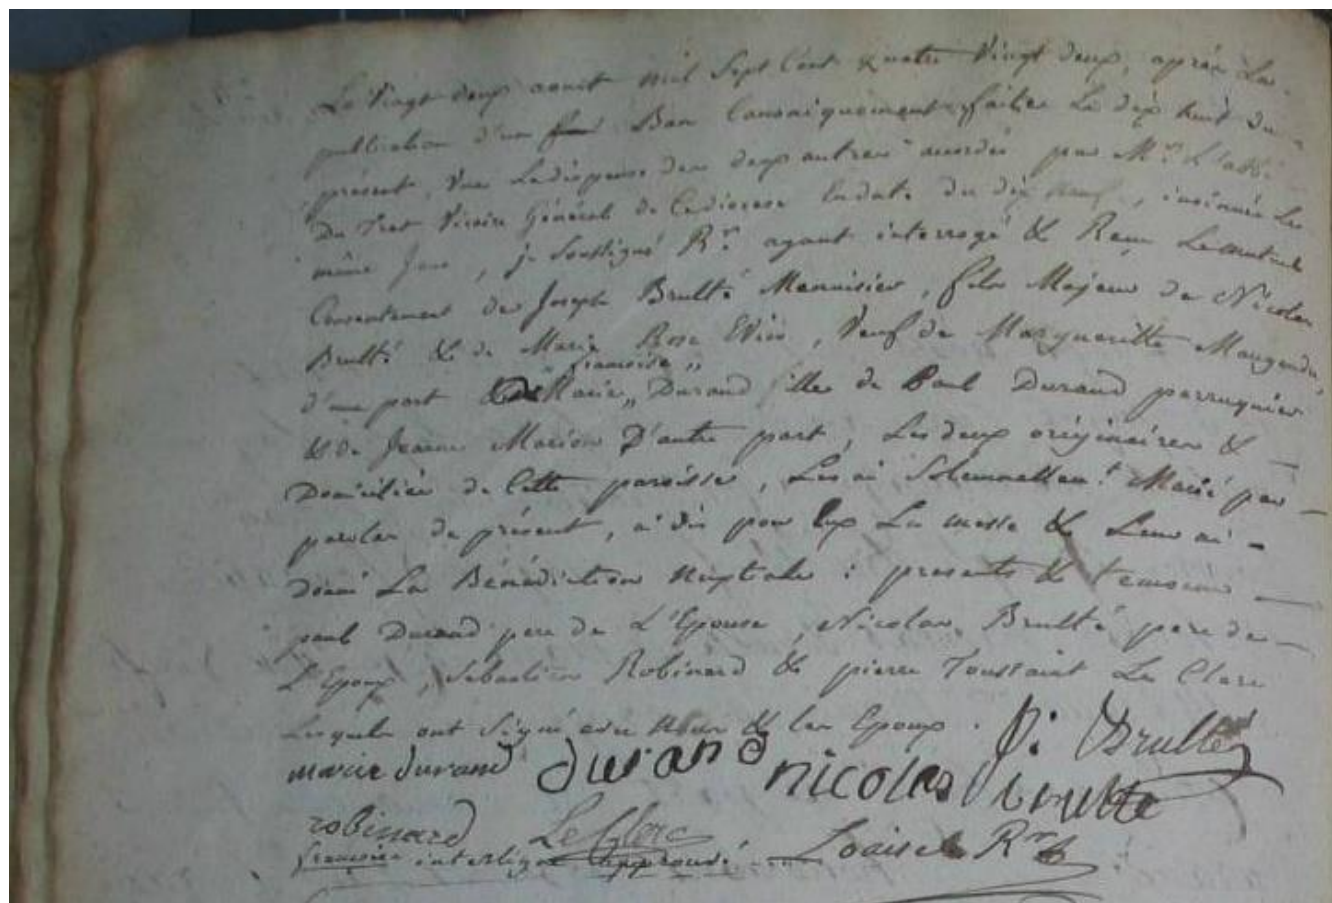 Le Vingt deux aoust mil Sept Cent quatre Vingt deux, après La
publication d'un Ban Canoniquement faitte Le dix huit du
présent, Vue La dispense des deux autres accordée par Mr. L'abbé
Du Tret Vicaire Général de Ce diocese En date du dix neuf, insinuée Le
même Jour, je Soussigné Rr. ayant interrogé & Reçu Le mutuel
Consentement de Joseph Brulté Menuisier, fils Majeur de Nicolas
Brulté & de Marie Rose, Veuf de Margueritte
„ francoise „
d'une part & de Marie „ Durand fille de Paul Durand perruquier
& de Jeanne Marion D'autre part, Les deux originaires &
Domiciliés de Cette paroisse, Les ai Solemnellemt. Marié par
paroles de présent, ai dis pour Eux La messe & Leur ai
Donné La Bénédiction Nuptiale : presents & temoins
paul Durand pere de L'Epouse, Nicolas Brulté pere de
L'Epoux, Sebastien Robinard & pierre Toussaint Le Clerc
Lesquels ont Signé avec Nous & les Epoux.
J: Brulté
marie durand durand nicolas brulte
robinard LeClerc
francoise interligne approuvé Loaisel Rr